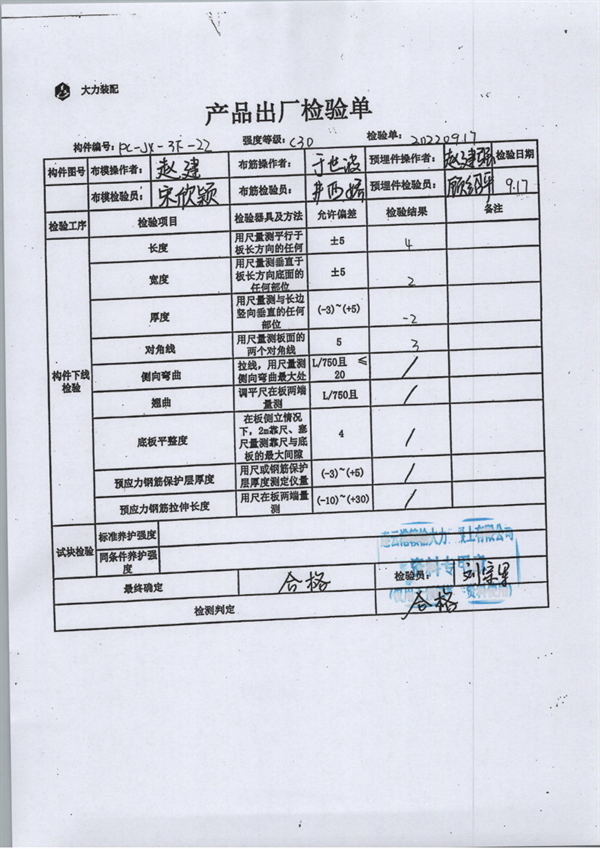 大力装配
产品出厂检验单
构件编号: PC-JX-3F-22 强度等级: C30 检验单: 20220917
构件图号 布模操作者: 赵建 布筋操作者: 于世波 预埋件操作者: 赵建强 检验日期
布模检验员: 宋欣颖 布筋检验员: 预埋件检验员: 9.17
检验工序 检验项目 检验器具及方法 允许偏差 检验结果 备注
构件下线检验
长度 用尺量测平行于板长方向的任何 ±5 4
宽度 用尺量测垂直于板长方向底面的任何部位 ±5 2
厚度 用尺量测与长边竖向垂直的任何部位 (-3)~(+5) -2
对角线 用尺量测板面的两个对角线 5 3
侧向弯曲 拉线，用尺量测侧向弯曲最大处 L/750且 ≤20 /
翘曲 调平尺在板两端量测 L/750且 /
底板平整度 在板侧立情况下，2m靠尺、塞尺量测靠尺与底板的最大间隙 4 /
预应力钢筋保护层厚度 用尺或钢筋保护层厚度测定仪量 (-3)~(+5) /
预应力钢筋拉伸长度 用尺在板两端量测 (-10)~(+30) /
试块检验 标准养护强度
同条件养护强度
最终确定 合格 检验员:
检测判定 合格
大力 土有限公司
资料专用章